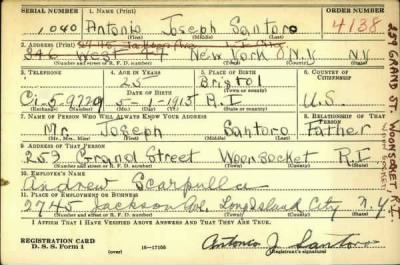 SERIAL NUMBER 1. NAME (Print) ORDER NUMBER
1040 Antonio Joseph Santoro 4138
(First) (Middle) (Last)
2. ADDRESS (Print)
346 West New York N.Y. NY
(Number and street or R. F. D. number) (Town) (County) (State)
3. TELEPHONE 4. AGE IN YEARS 5. PLACE OF BIRTH 6. COUNTRY OF CITIZENSHIP
25 Bristol
DATE OF BIRTH
Ci-5-9729 5-11-1915 R.I. U.S.
(Exchange) (Number) (Mo.) (Day) (Yr.) (Town or county) (State or country)
7. NAME OF PERSON WHO WILL ALWAYS KNOW YOUR ADDRESS 8. RELATIONSHIP OF THAT PERSON
Mr. Joseph Santoro Father
(Mr., Mrs., Miss) (First) (Middle) (Last)
9. ADDRESS OF THAT PERSON
253 Grand Street Woonsocket R.I.
(Number and street or R. F. D. number) (Town) (County) (State)
10. EMPLOYER'S NAME
Andrew Scarpulla
11. PLACE OF EMPLOYMENT OR BUSINESS
2745 Jackson Ave. Long Island City N.Y.
(Number and street or R. F. D. number) (Town) (County) (State)
I AFFIRM THAT I HAVE VERIFIED ABOVE ANSWERS AND THAT THEY ARE TRUE.
REGISTRATION CARD
D. S. S. Form 1 (over) 16-17105 Antonio J. Santoro
(Registrant's signature)
GRAND ST. WOONSOCKET R.I.